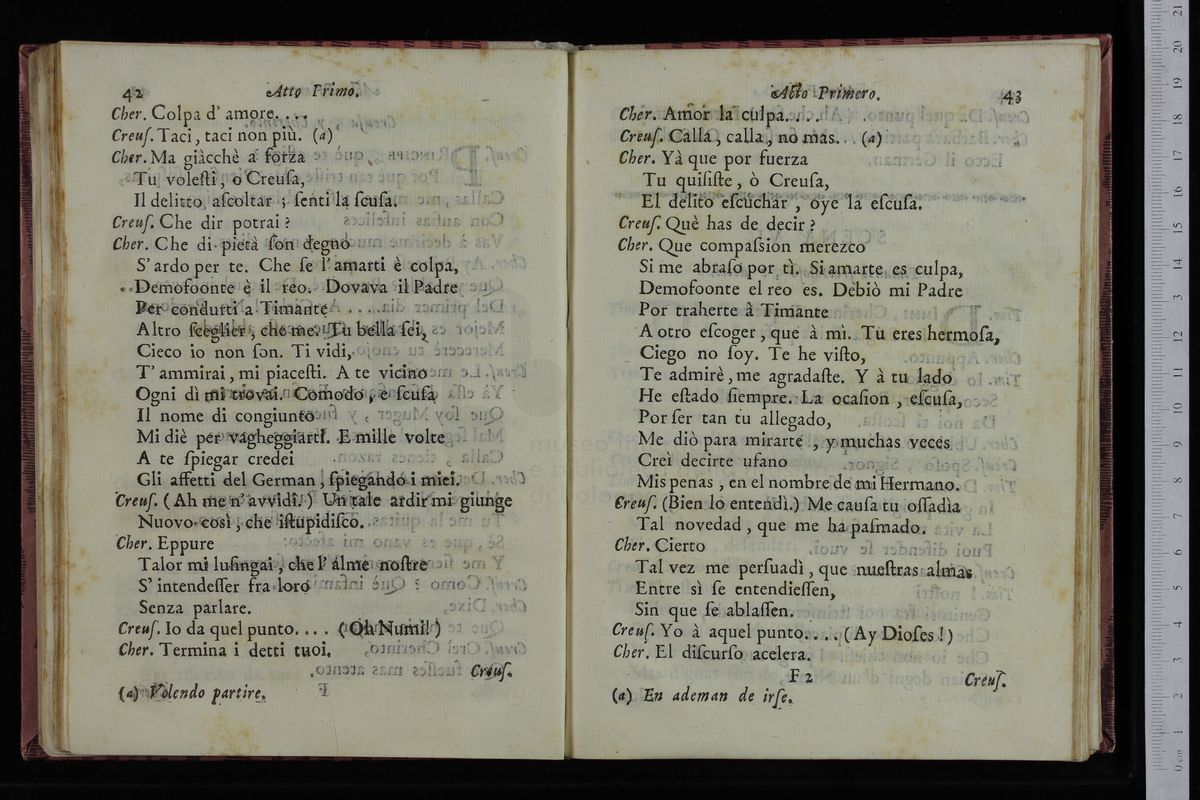 42 Atto Primo.
Cher. Colpa d' amore....
Creuſ. Taci, taci non più. (a)
Cher. Ma giàcchè a forza
Tu voleſti, o Creuſa,
Il delitto aſcoltar; ſenti la ſcuſa.
Creuſ. Che dir potrai?
Cher. Che di pietà ſon degno
S' ardo per te. Che ſe l' amarti è colpa,
Demofoonte è il reo. Dovava il Padre
Per condurti a Timante ....
Altro ſceglier, che me. Tu bella ſei,
Cieco io non ſon. Ti vidi,
T' ammirai, mi piaceſti. A te vicino
Ogni dì mi trovai. Comodo, e ſcuſa
Il nome di congiunto
Mi diè per vagheggiarti. E mille volte
A te ſpiegar credei
Gli affetti del German, ſpiegando i miei.
Creuſ. (Ah me n' avvidi.) Un tale ardir mi giunge
Nuovo così, che iſtupidiſco.
Cher. Eppure
Talor mi luſingai, che l' alme noſtre
S' intendeſſer fra loro
Senza parlare.
Creuſ. Io da quel punto.... (Oh Numi!)
Cher. Termina i detti tuoi.
Creuſ.
(a) Volendo partire.
Acto Primero. 43
Cher. Amor la culpa...
Creuſ. Calla, calla, no mas... (a)
Cher. Yà que por fuerza
Tu quiſiſte, ò Creuſa,
El delito eſcuchar, oye la eſcuſa.
Creuſ. Què has de decir?
Cher. Que compaſsion merezco
Si me abraſo por tì. Si amarte es culpa,
Demofoonte el reo es. Debiò mi Padre
Por traherte à Timante
A otro eſcoger, que à mì. Tu eres hermoſa,
Ciego no ſoy. Te he viſto,
Te admirè, me agradaſte. Y à tu lado
He eſtado ſiempre. La ocaſion, eſcuſa,
Por ſer tan tu allegado,
Me diò para mirarte, y muchas veces
Creì decirte ufano
Mis penas, en el nombre de mi Hermano.
Creuſ. (Bien lo entendì.) Me cauſa tu oſſadìa
Tal novedad, que me ha paſmado.
Cher. Cierto
Tal vez me perſuadì, que nueſtras almas
Entre sì ſe entendieſſen,
Sin que ſe ablaſſen.
Creuſ. Yo à aquel punto.... (Ay Dioſes!)
Cher. El diſcurſo acelera.
F 2 Creuſ.
(a) En ademan de irſe.